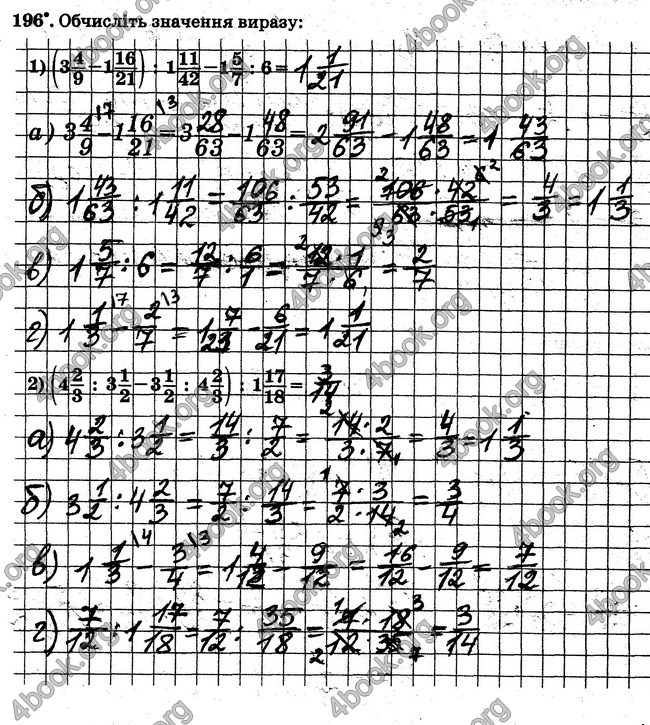 196°. Обчисліть значення виразу:
1) (3 4/9 − 1 16/21) : 1 11/42 − 1 5/7 : 6 = 1 1/21
а) 3 4/9 \7 − 1 16/21 \3 = 3 28/63 − 1 48/63 = 2 91/63 − 1 48/63 = 1 43/63
б) 1 43/63 : 1 11/42 = 106/63 : 53/42 = 106 · 42 / 63 · 53 = 4/3 = 1 1/3
в) 1 5/7 : 6 = 12/7 : 6/1 = 12 · 1 / 7 · 6 = 2/7
г) 1 1/3 \7 − 2/7 \3 = 1 7/21 − 6/21 = 1 1/21
2) (4 2/3 : 3 1/2 − 3 1/2 : 4 2/3) : 1 17/18 = 3/14
а) 4 2/3 : 3 1/2 = 14/3 : 7/2 = 14 · 2 / 3 · 7 = 4/3 = 1 1/3
б) 3 1/2 : 4 2/3 = 7/2 : 14/3 = 7 · 3 / 2 · 14 = 3/4
в) 1 1/3 \4 − 3/4 \3 = 1 4/12 − 9/12 = 16/12 − 9/12 = 7/12
г) 7/12 : 1 17/18 = 7/12 : 35/18 = 7 · 18 / 12 · 35 = 3/14
4book.org